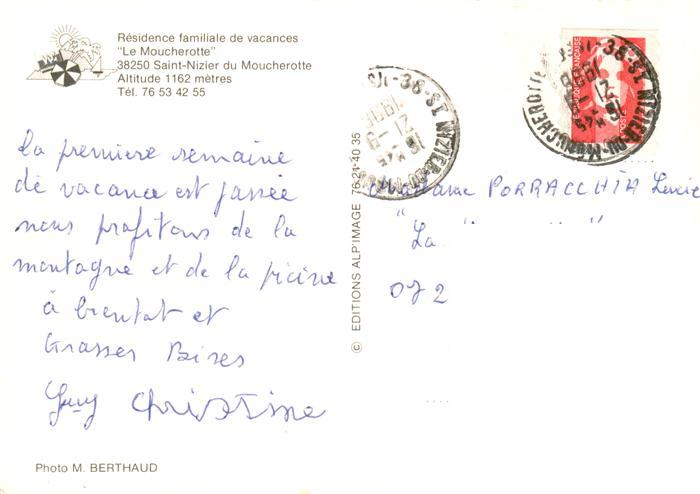 Résidence familiale de vacances
"Le Moucherotte"
38250 Saint-Nizier du Moucherotte
Altitude 1162 mètres
Tél. 76 53 42 55
la première semaine
de vacance est passée
nous profitons de la
montagne et de la picine
à bientot et
Grasses Bises
Guy Christine
Photo M. BERTHAUD
© EDITIONS ALP'IMAGE 76 21 40 35
38-ST NIZIER DU MOUCHEROTTE
16 H 45
21-
38-ST NIZIER DU MOUCHEROTTE
16 H 45
21-
POSTES
Madame PORRACCHIA Lucie
" " "
La
072